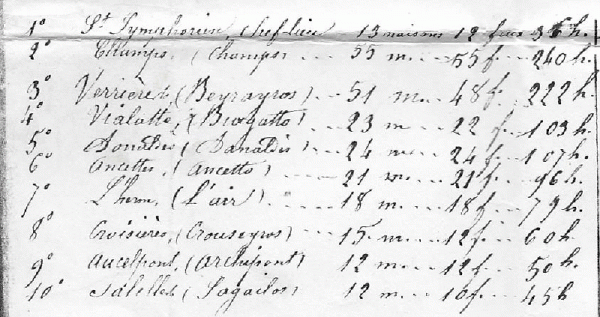 1° St Symphorien, chef-lieu 13 maisons 12 feux 36 h.
2° Champs, (Champs) ... 55 m. ... 55 f. ... 240 h.
3° Verrières, (Beyrayros) ... 51 m. ... 48 f. ... 222 h.
4° Vialotte, (Biogatto) ... 23 m ... 22 f ... 103 h.
5° Donaldès (Danaldis) ... 24 m ... 24 f ... 107 h.
6° Ancettes, (Ancetto) ... 21 m. ... 21 f ... 96 h.
7° L'herm, (L'air) ... 18 m ... 18 f ... 79 h.
8° Croisières, (Crouseyros) ... 15 m ... 12 f. ... 60 h.
9° Aucelpont, (Archipont) 12 m ... 12 f. ... 50 h.
10° Salelles (Sagailos) 12 m. ... 10 f. ... 45 h